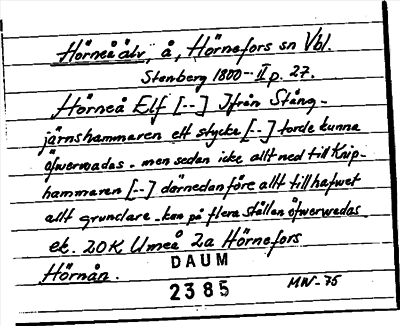 Hörneå älv, å, Hörnefors sn Vbl.
Stenberg 1800-- II p. 27.
Hörneå Elf [--] Ifrån Stång-
järnshammaren ett stycke [--] torde kunna
öfwerwadas - men sedan icke allt ned till Knip-
hammaren [--] därnedanföre allt till hafwet
allt grundare - kan på flera ställen öfwerwadas
ek. 20K Umeå 2a Hörnefors
Hörnån.
DAUM
2385 MW-75